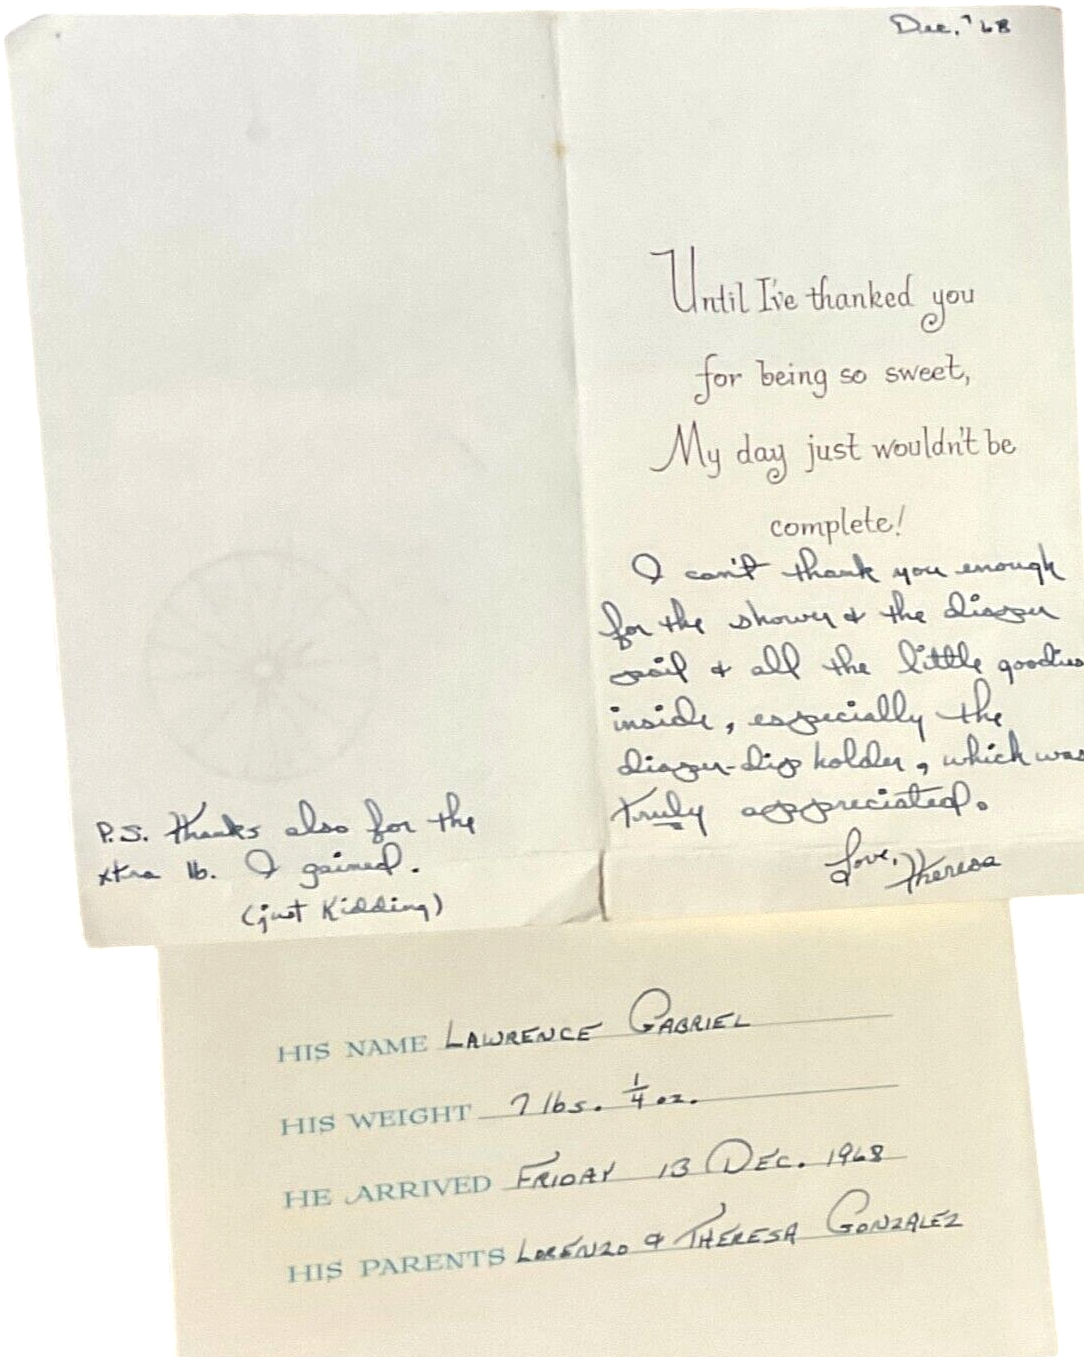 Dec, '68
Until I've thanked you
for being so sweet,
My day just wouldn't be
complete!
I can't thank you enough
for the shower & the diaper
pail & all the little goodies
inside, especially the
diaper-dip holder, which was
truly appreciated.
Love, Theresa
P.S. thanks also for the
xtra lb. I gained.
(just kidding)
HIS NAME LAWRENCE GABRIEL
HIS WEIGHT 7 lbs. 1/4 oz.
HE ARRIVED FRIDAY 13 DEC. 1968
HIS PARENTS LORENZO & THERESA GONZALEZ